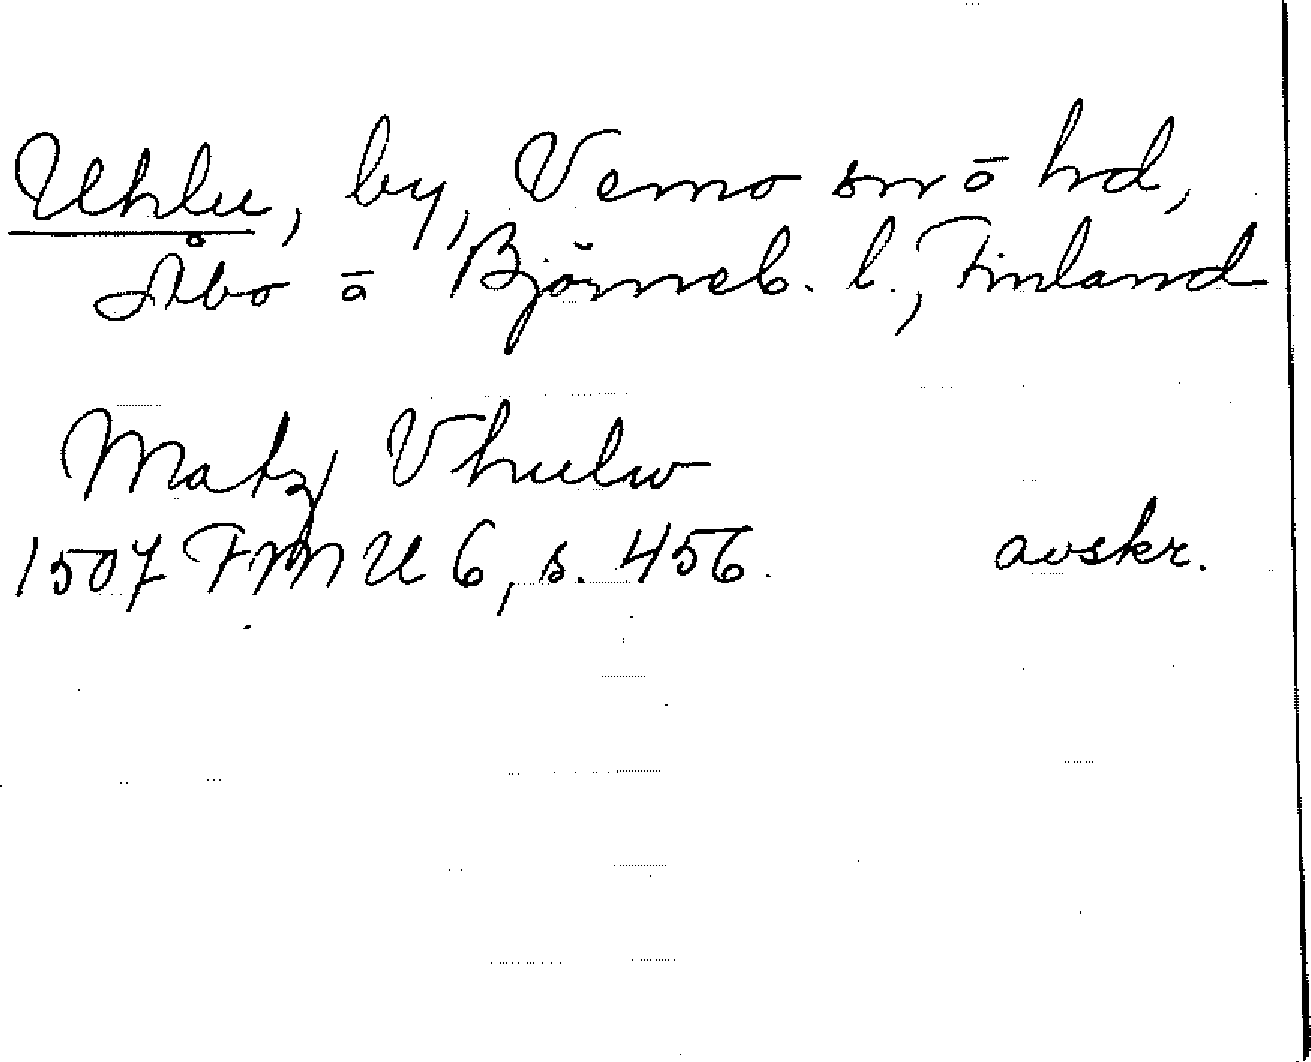 Uhlu, by, Vemo sn o hd,
Åbo o Björneb. l., Finland
Matz Vhulw
1507 FMU 6, s. 456. avskr.